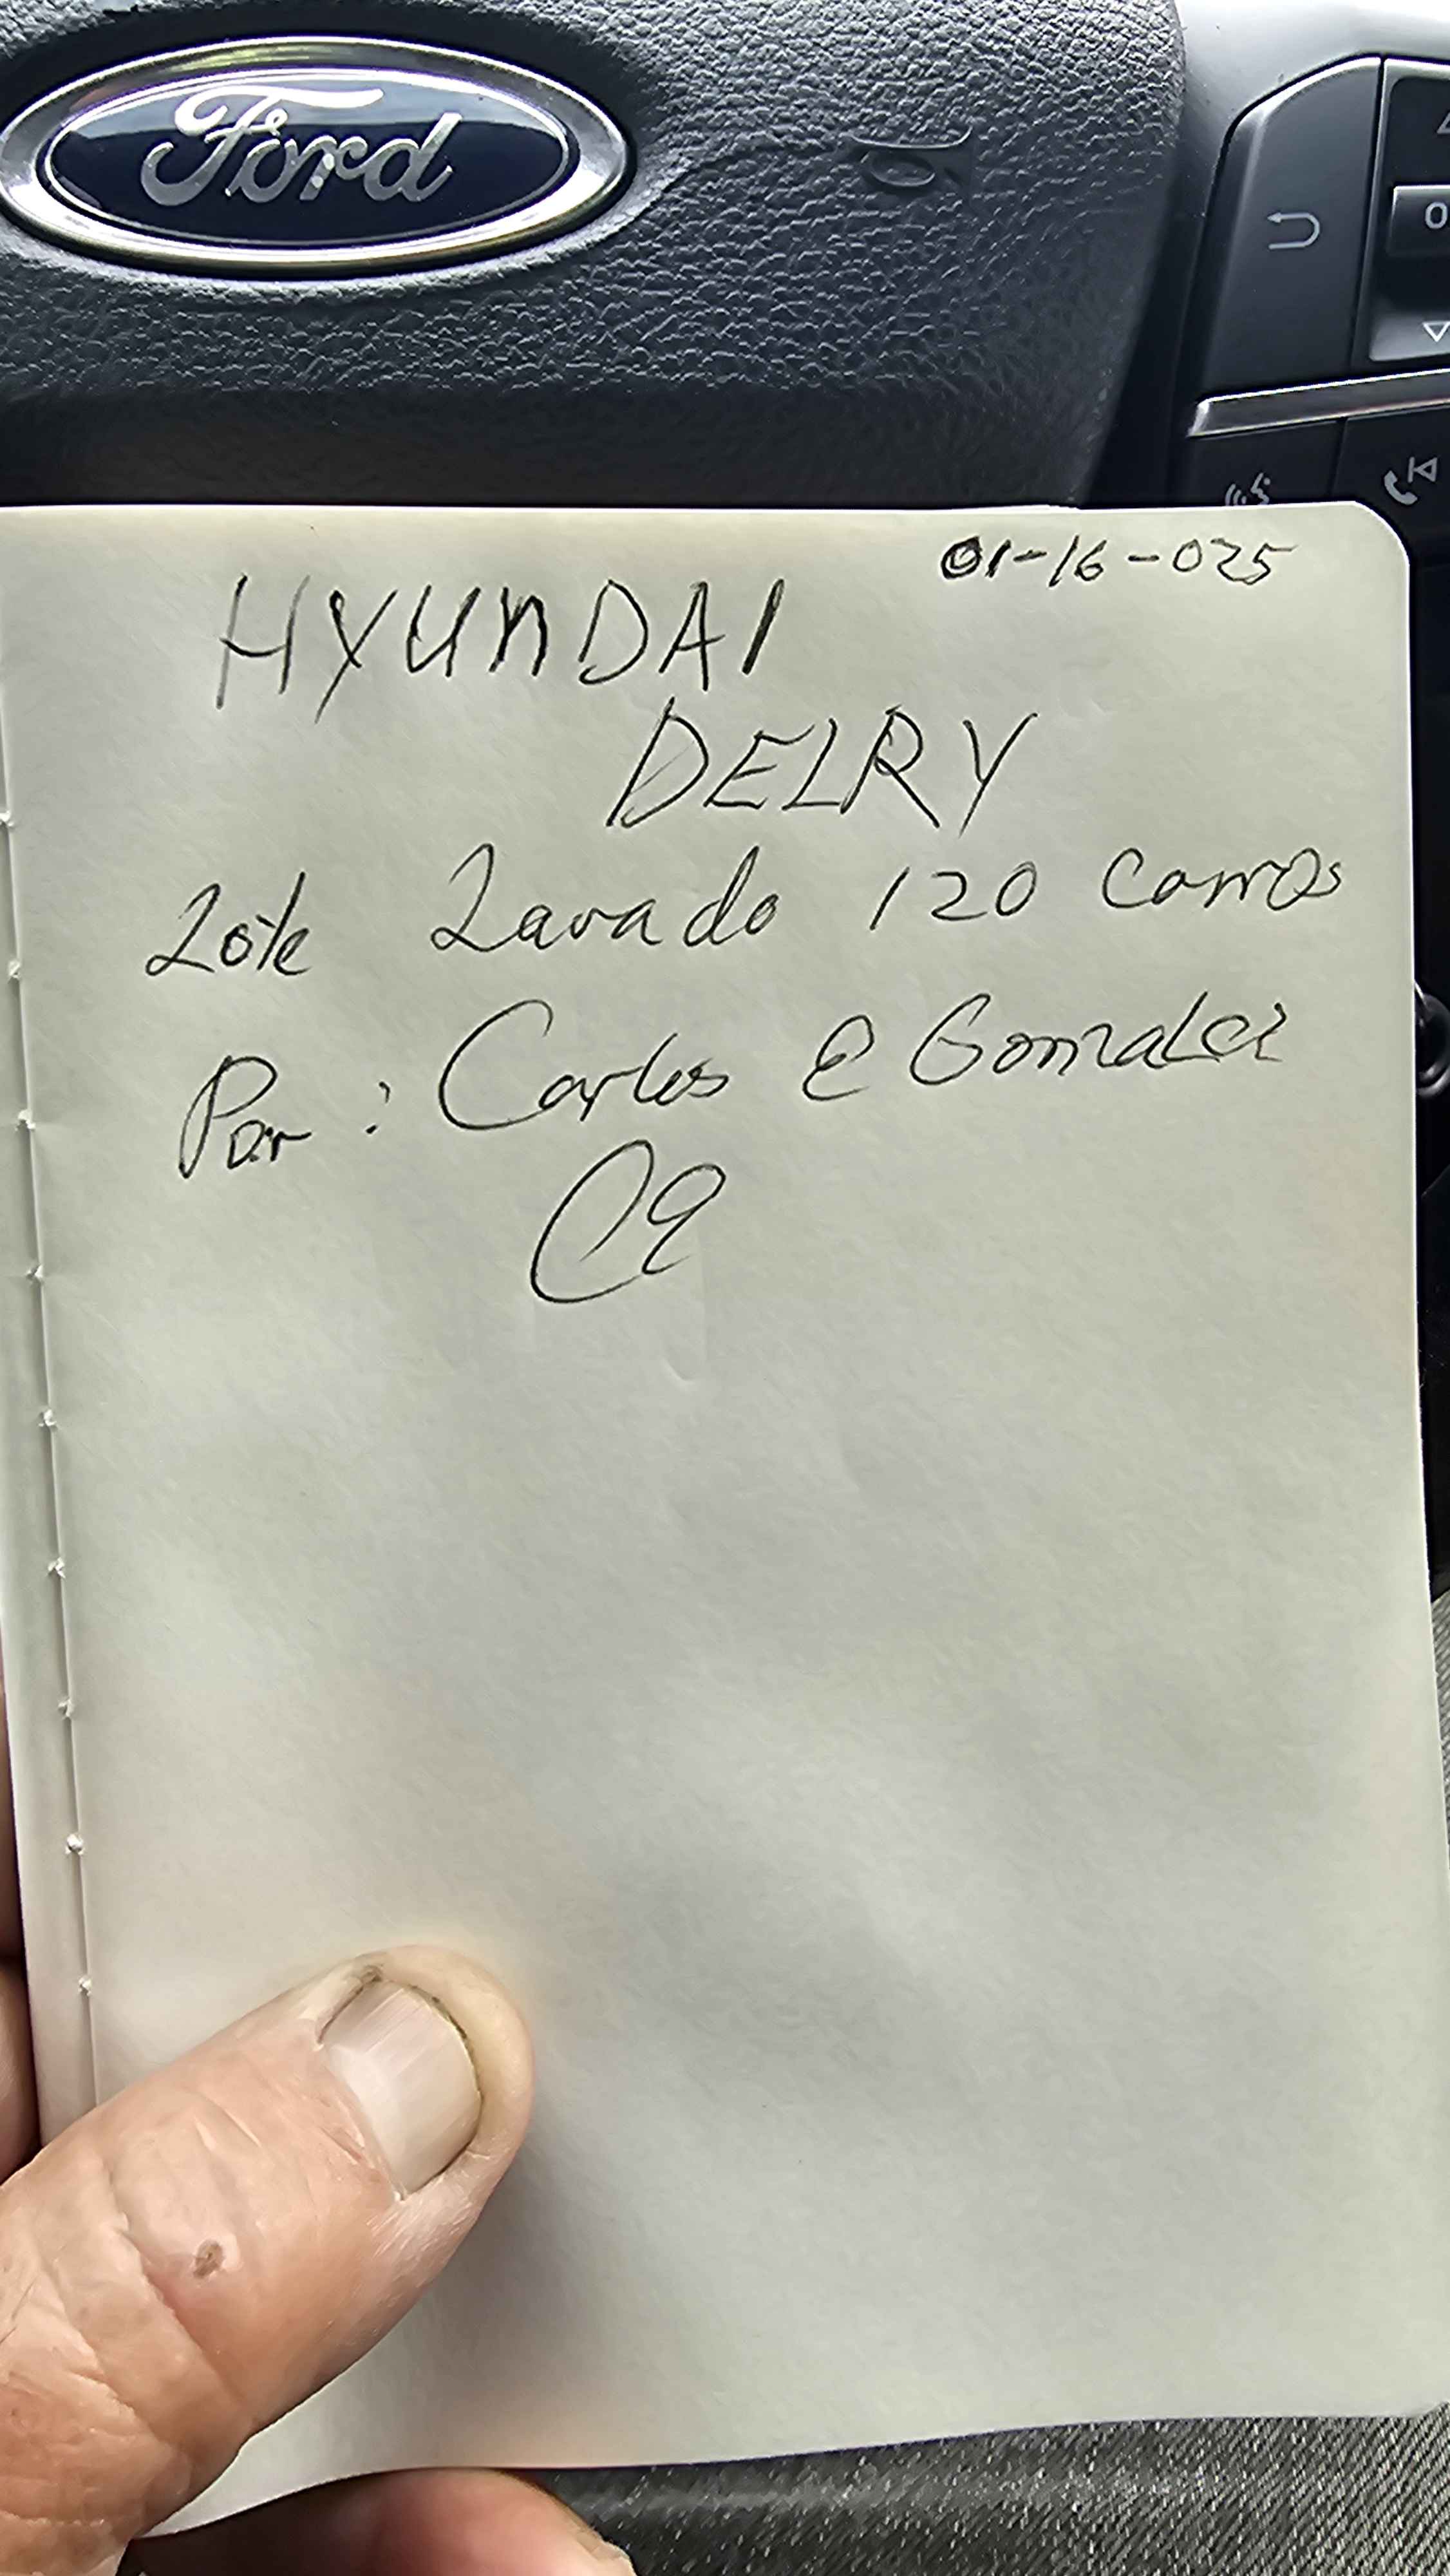 Ford
01-16-025
HYUNDAI
DELRY
Lote Lavado 120 Carros
Por: Carlos E Gonzalez